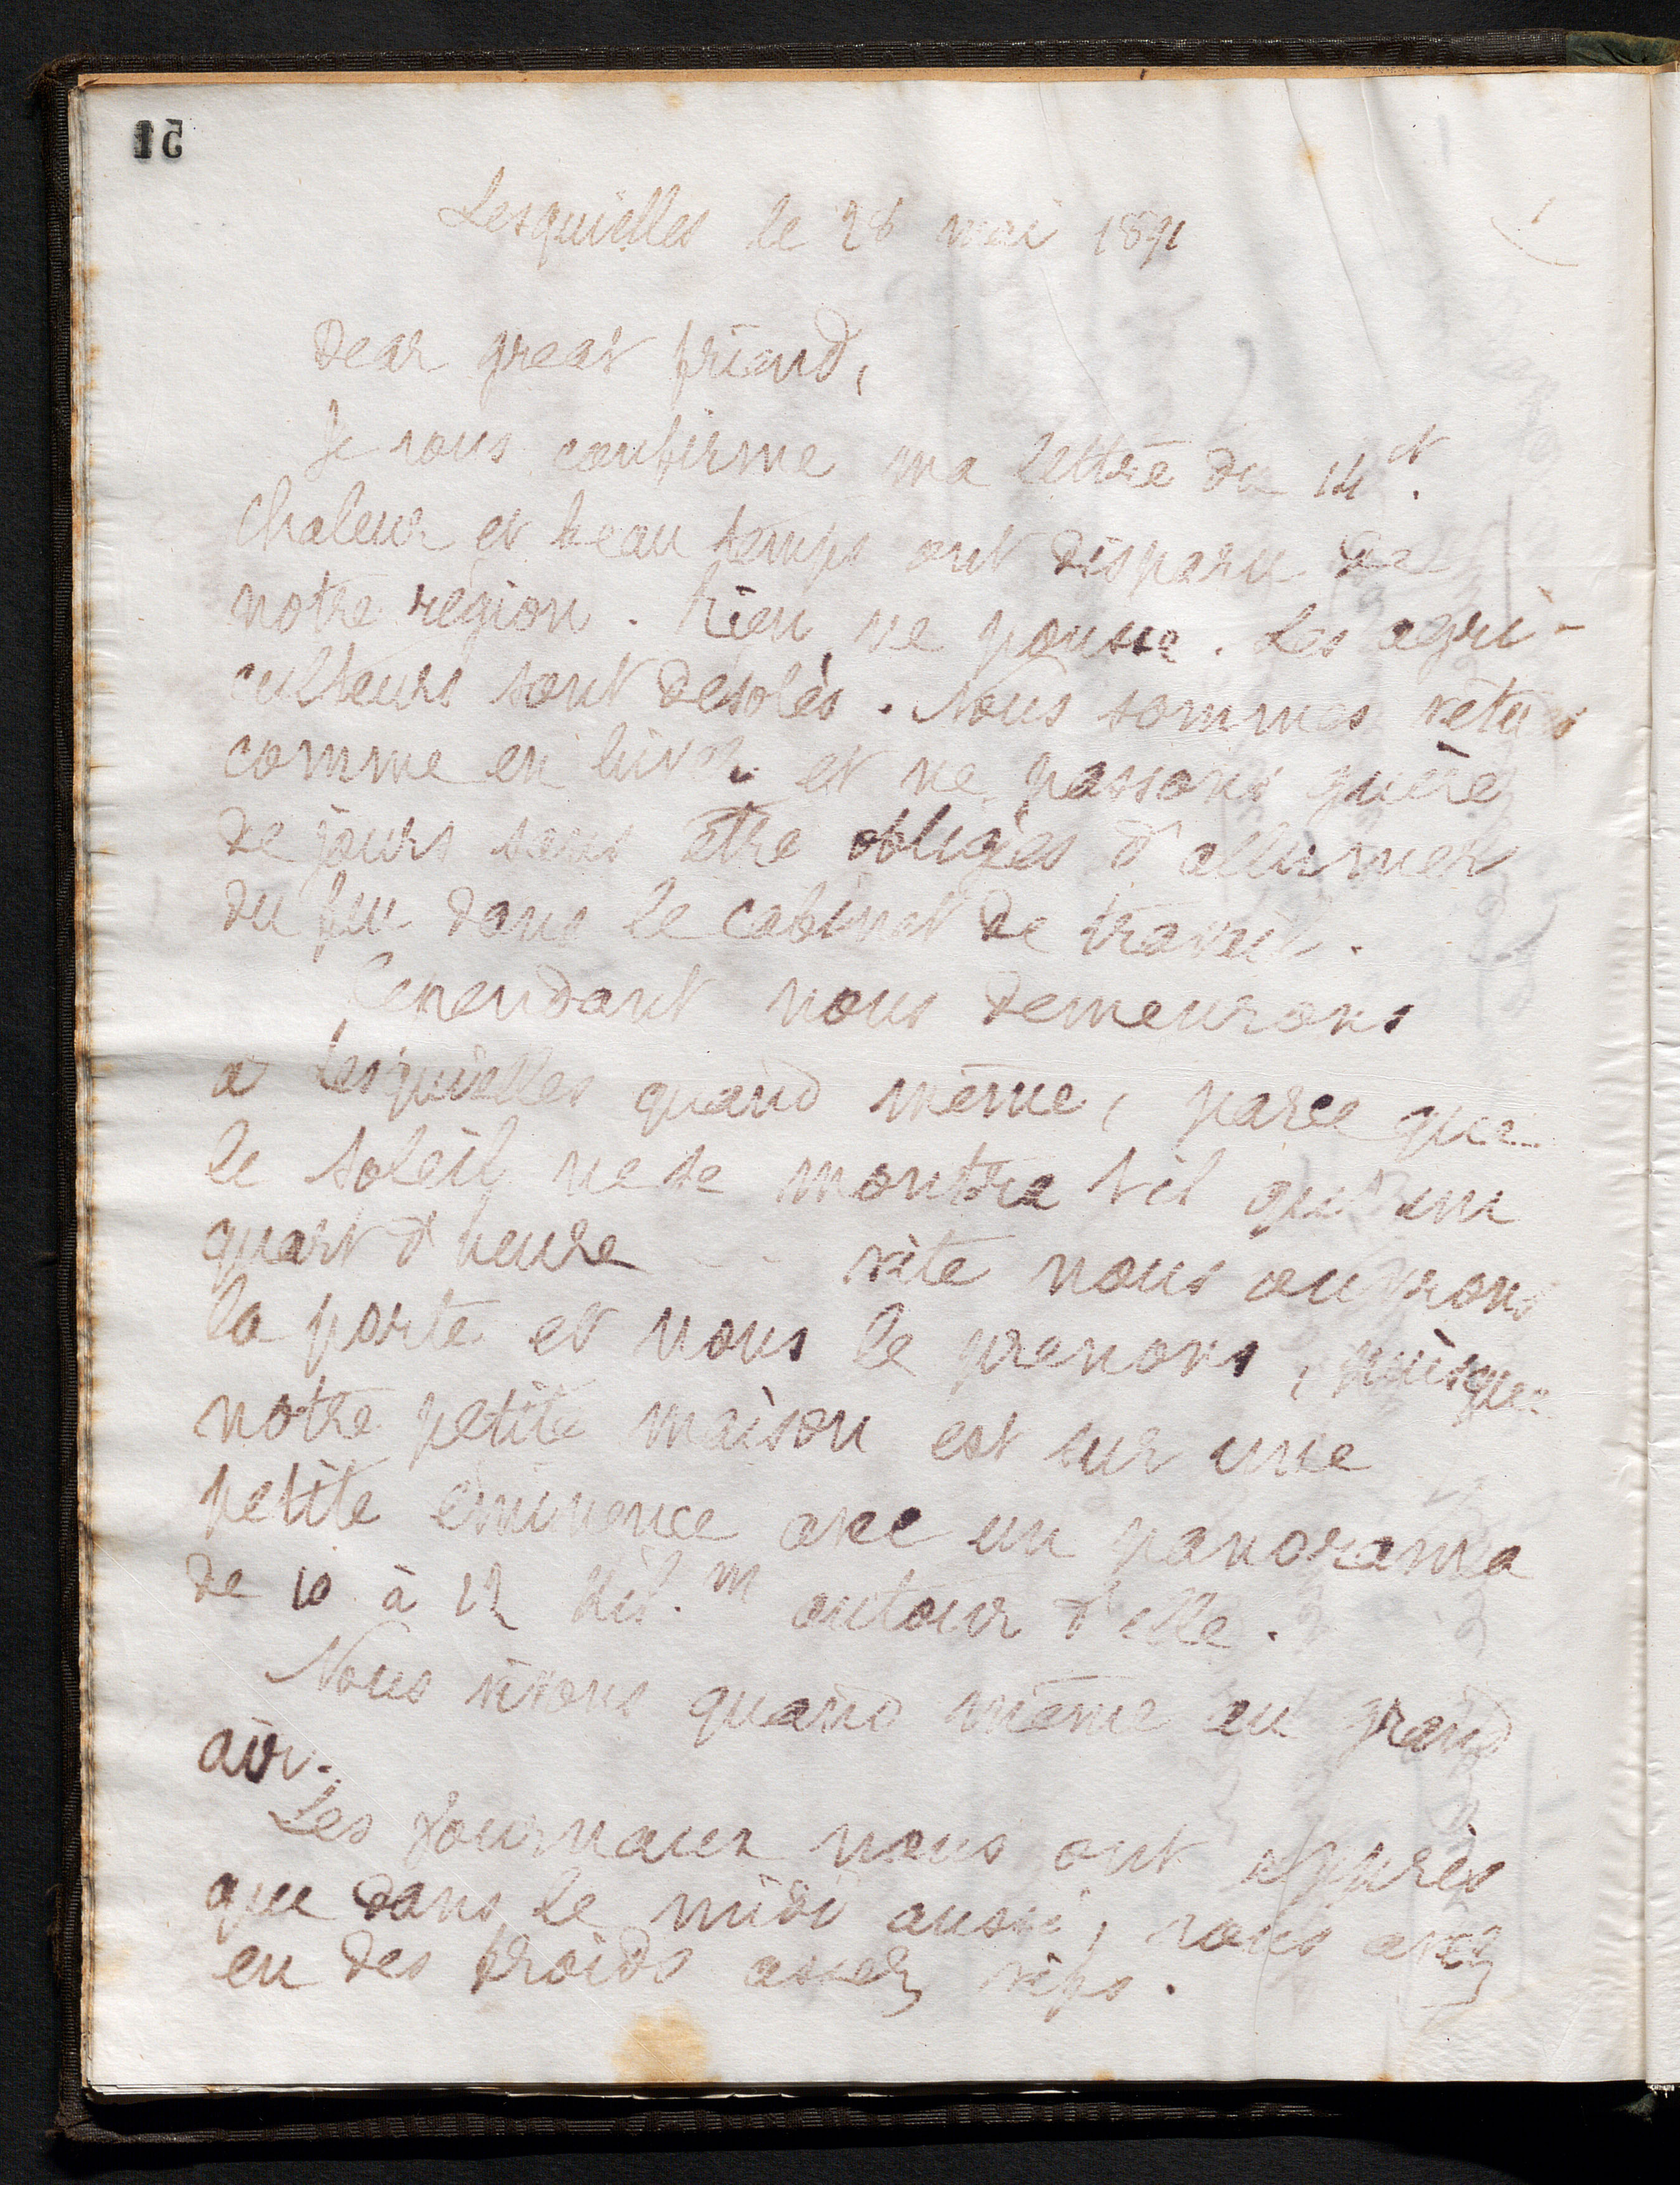 51
Lesquielles le 28 mai 1891
Dear great friend,
Je vous confirme ma lettre du 14 ct.
Chaleur et beau temps ont disparu de
notre région. Rien ne pousse. Les agri-
culteurs sont desolés. Nous sommes vetus
comme en hiver et ne passons guère
de jours sans être obligés d'allumer
du feu dans le cabinet de travail.
Cependant nous demeurons
a Lesquielles quand même, parce que
le soleil ne se montre t'il qu'un
quart d'heure -- vite nous ouvrons
la porte et nous le prenons, puisque
notre petite maison est sur une
petite éminence avec un panorama
de 10 à 12 kil.m autour d'elle.
Nous vivons quand même au grand
air.
Les Journaux nous ont appris
que dans le midi aussi, vous avez
eu des froids assez vifs.